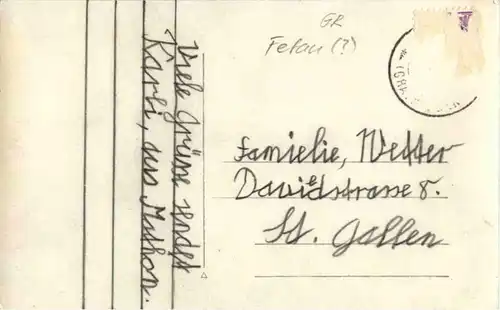 GR
Fetan (?)
Viele Grüsse sendet
Karli, aus
Familie, Wetter
Davidstrasse 8.
St. Gallen